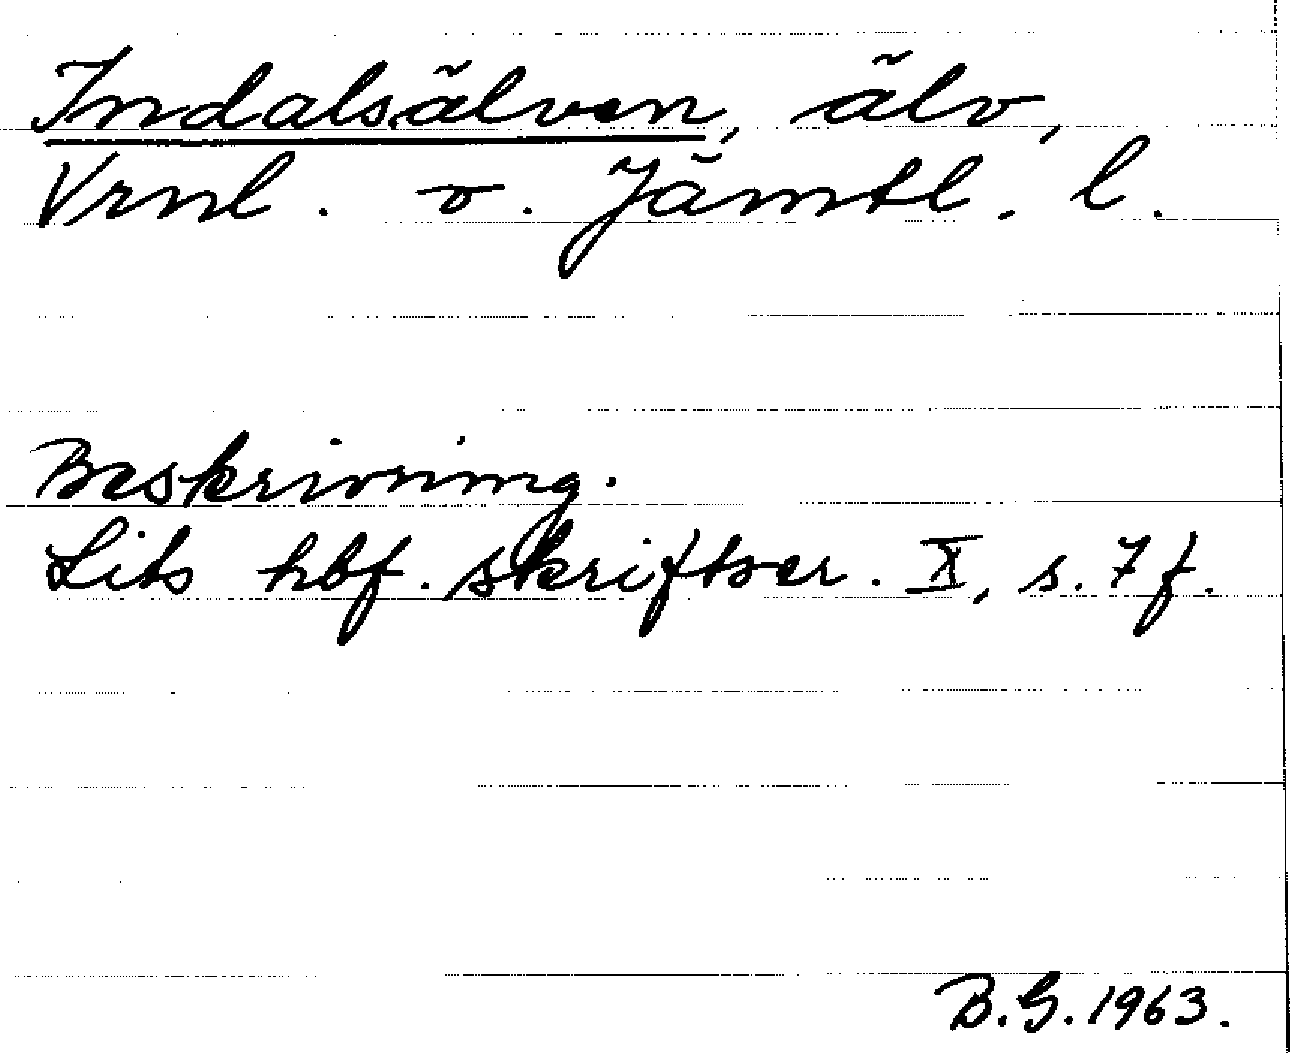 Indalsälven, älv,
Vrnl. o. Jämtl. l.
Beskrivning.
Lits hbf. skriftser. X, s. 7 f.
B.G. 1963.